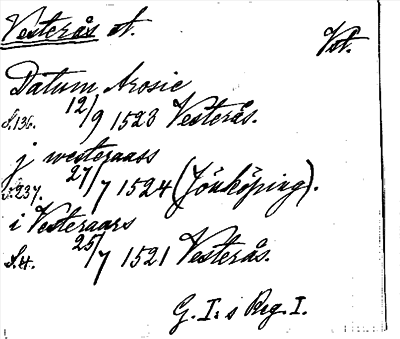 Vesterås st. Vst.
Datum Arosie
S.136. 12/9 1523 Vesterås.
j westeraass
S.237. 27/7 1524 (Jönköping).
i Vesteraars
S.4. 25/7 1521 Vesterås.
G. I:s Reg. I.